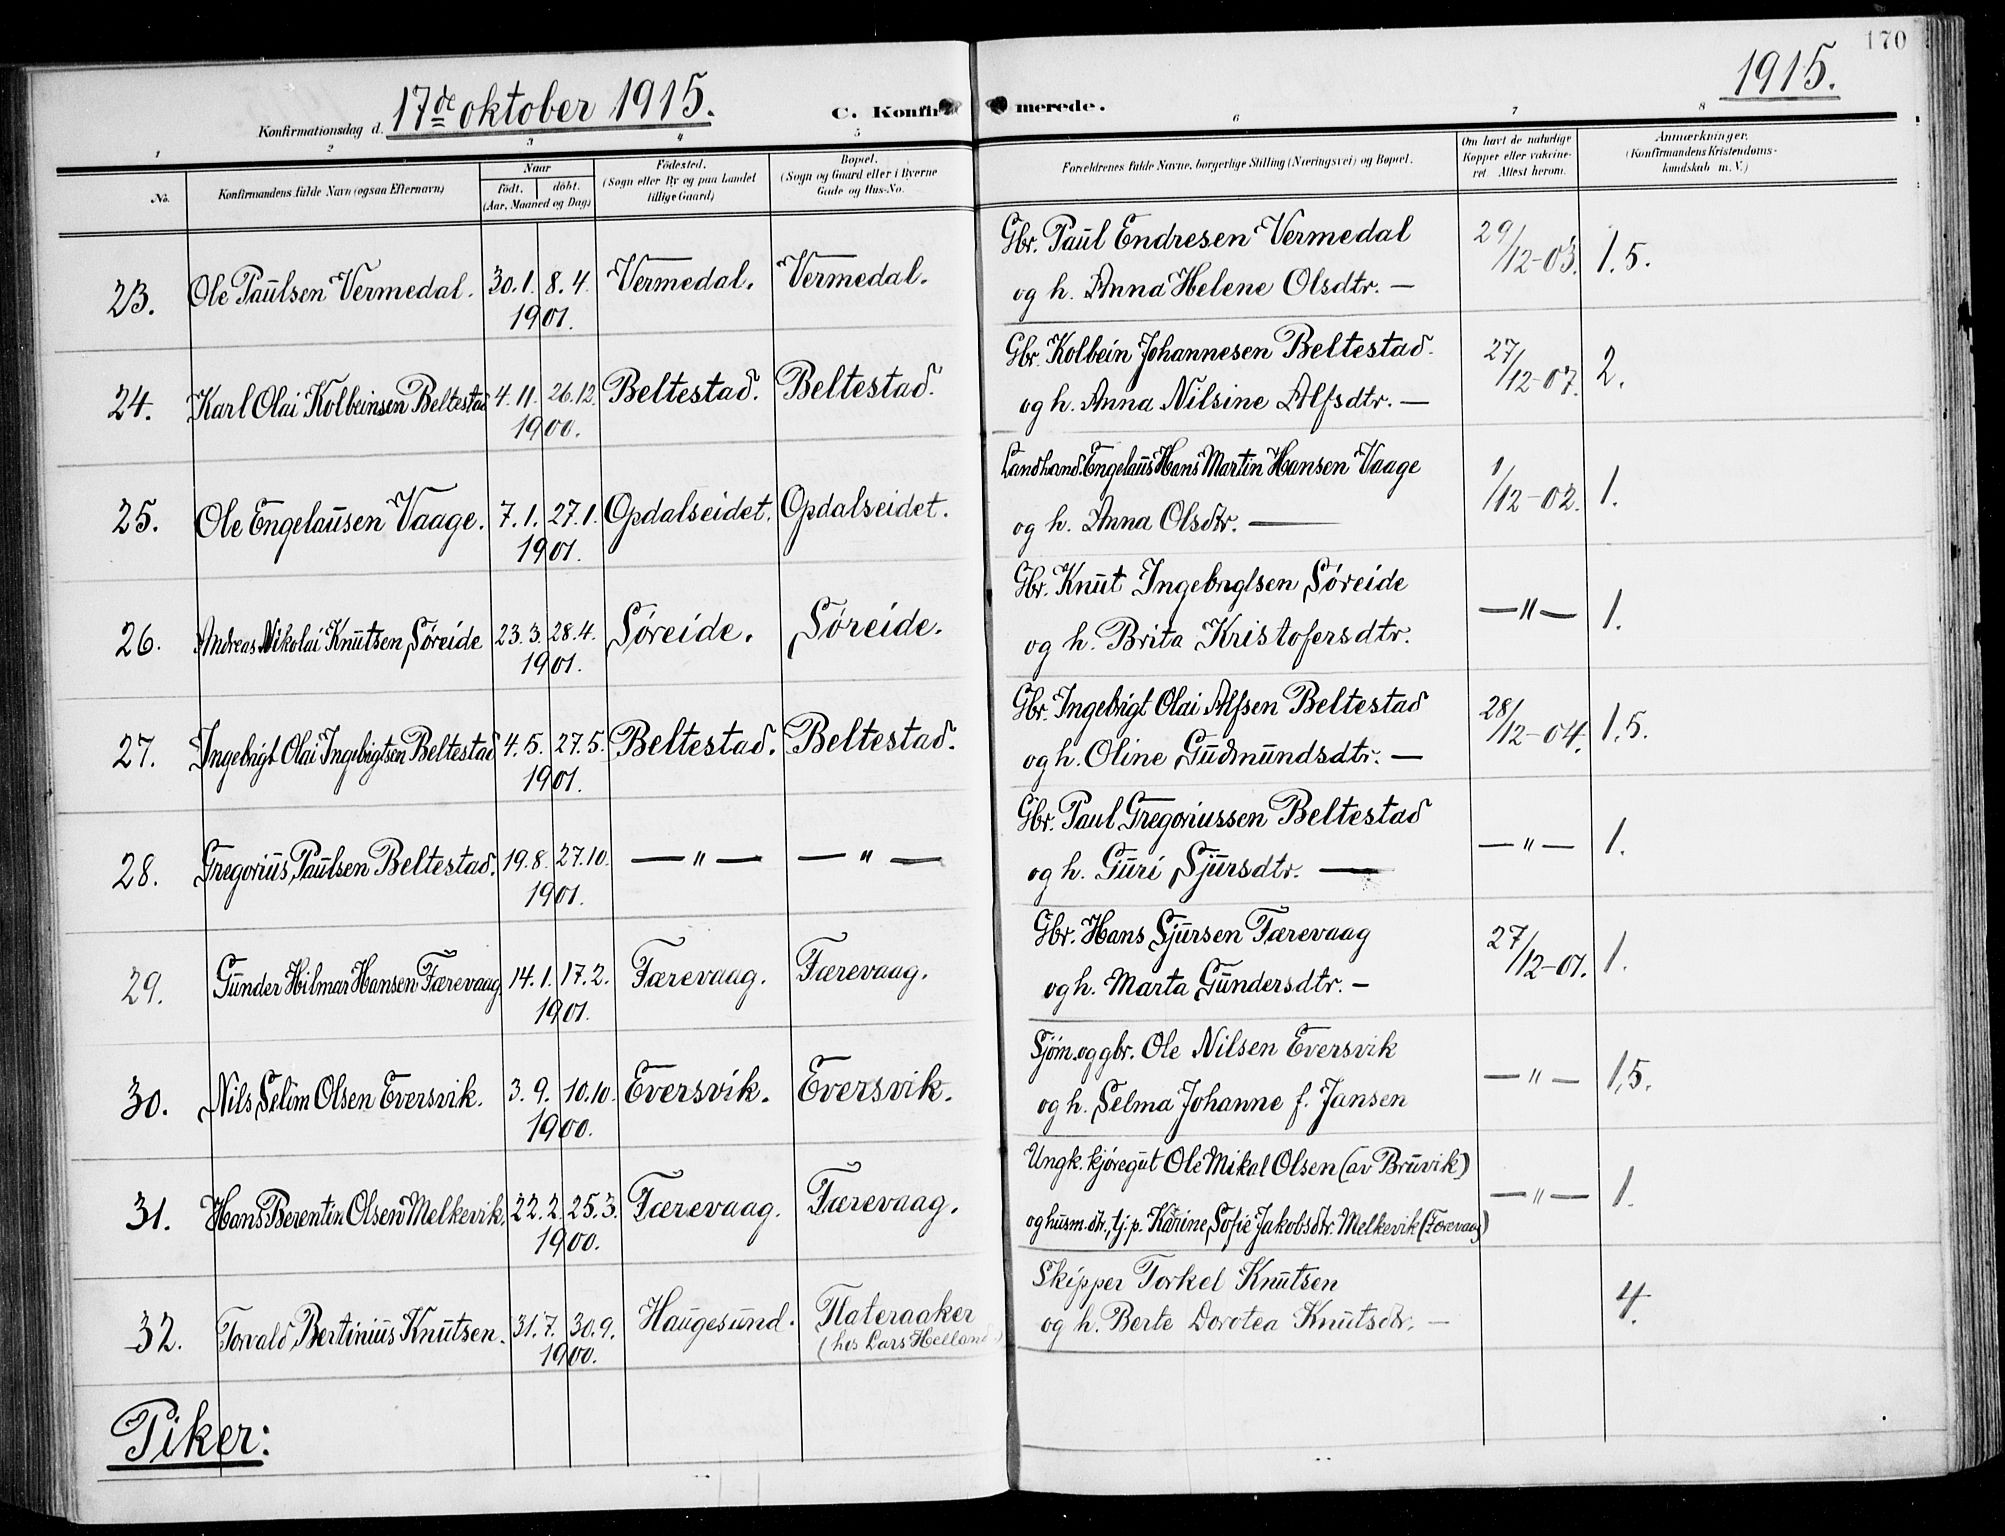 170
1915.
Konfirmationsdag d. 17de oktober 1915.
C. Konfirmerede.
1 2 3 4 5 6 7 8
No.
Konfirmandens fulde Navn (ogsaa Efternavn)
Naar
født. døbt.
(Aar, Maaned og Dag)
Fødested.
(Sogn eller By og paa Landet
tillige Gaard)
Bopæl.
(Sogn og Gaard eller i Byerne
Gade og Hus-No.
Forældrenes fulde Navne, borgerlige Stilling (Næringsvei) og Bopæl.
Om havt de naturlige
Kopper eller vakcine-
ret Attest herom.
Anmærkninger.
(Konfirmandens Kristendoms-
kundskab m. V.)
23. Ole Paulsen Vermedal. 30.1. 8.4. Vermedal. Vermedal. Gbr. Paul Endresen Vermedal 29/12-03. 1.5.
1901. og h. Anna Helene Olsdtr. —
24. Karl Olai Kolbeinsen Beltestad 4.11. 26.12. Beltestad. Beltestad. Gbr. Kolbein Johannesen Beltestad. 27/12-07. 2.
1900. og h. Anna Nilsine Alfsdtr. —
25. Ole Engelausen Vaage. 7.1. 27.1. Opdalseidet. Opdalseidet. Landhand. Engelaus Hans Martin Hansen Vaage 1/12-02. 1.
1901. og h. Anna Olsdtr. —
26. Andreas Nikolai Knutsen Søreide 23.3. 28.4. Søreide. Søreide. Gbr. Knut Ingebrigtsen Søreide — " — 1.
1901. og h. Brita Kristofersdtr.
27. Ingebrigt Olai Ingebrigtsen Beltestad 4.5. 27.5. Beltestad. Beltestad. Gbr. Ingebrigt Olai Alfsen Beltestad 28/12-04. 1.5.
1901. og h. Oline Gudmundsdtr. —
28. Gregorius Paulsen Beltestad. 19.8. 27.10. — " — — " — Gbr. Paul Gregoriussen Beltestad — " — 1.
1901. og h. Guri Sjursdtr. —
29. Gunder Hilmar Hansen Færevaag. 14.1. 17.2. Færevaag. Færevaag. Gbr. Hans Sjursen Færevaag 27/12-01. 1.
1901. og h. Marta Gundersdtr. —
30. Nils Selim Olsen Eversvik. 3.9. 10.10. Eversvik. Eversvik. Sjøm. og gbr. Ole Nilsen Eversvik — " — 1.5.
1900. og h. Selma Johanne f. Jansen
31. Hans Berentin Olsen Melkevik. 22.2. 25.3. Færevaag. Færevaag. Ungk. kjøregut Ole Mikal Olsen (av Bruvik) — " — 1.
1900. og husm.dtr., tj.p. Karine Sofie Jakobsdtr. Melkevik (Færevaag)
32. Torvald Bertinius Knutsen. 31.7. 30.9. Haugesund. Flateraaker Skipper Torkel Knutsen 4.
1900. (hos Lars Helland) og h. Berte Dorotea Knutsdtr. —
Piker: